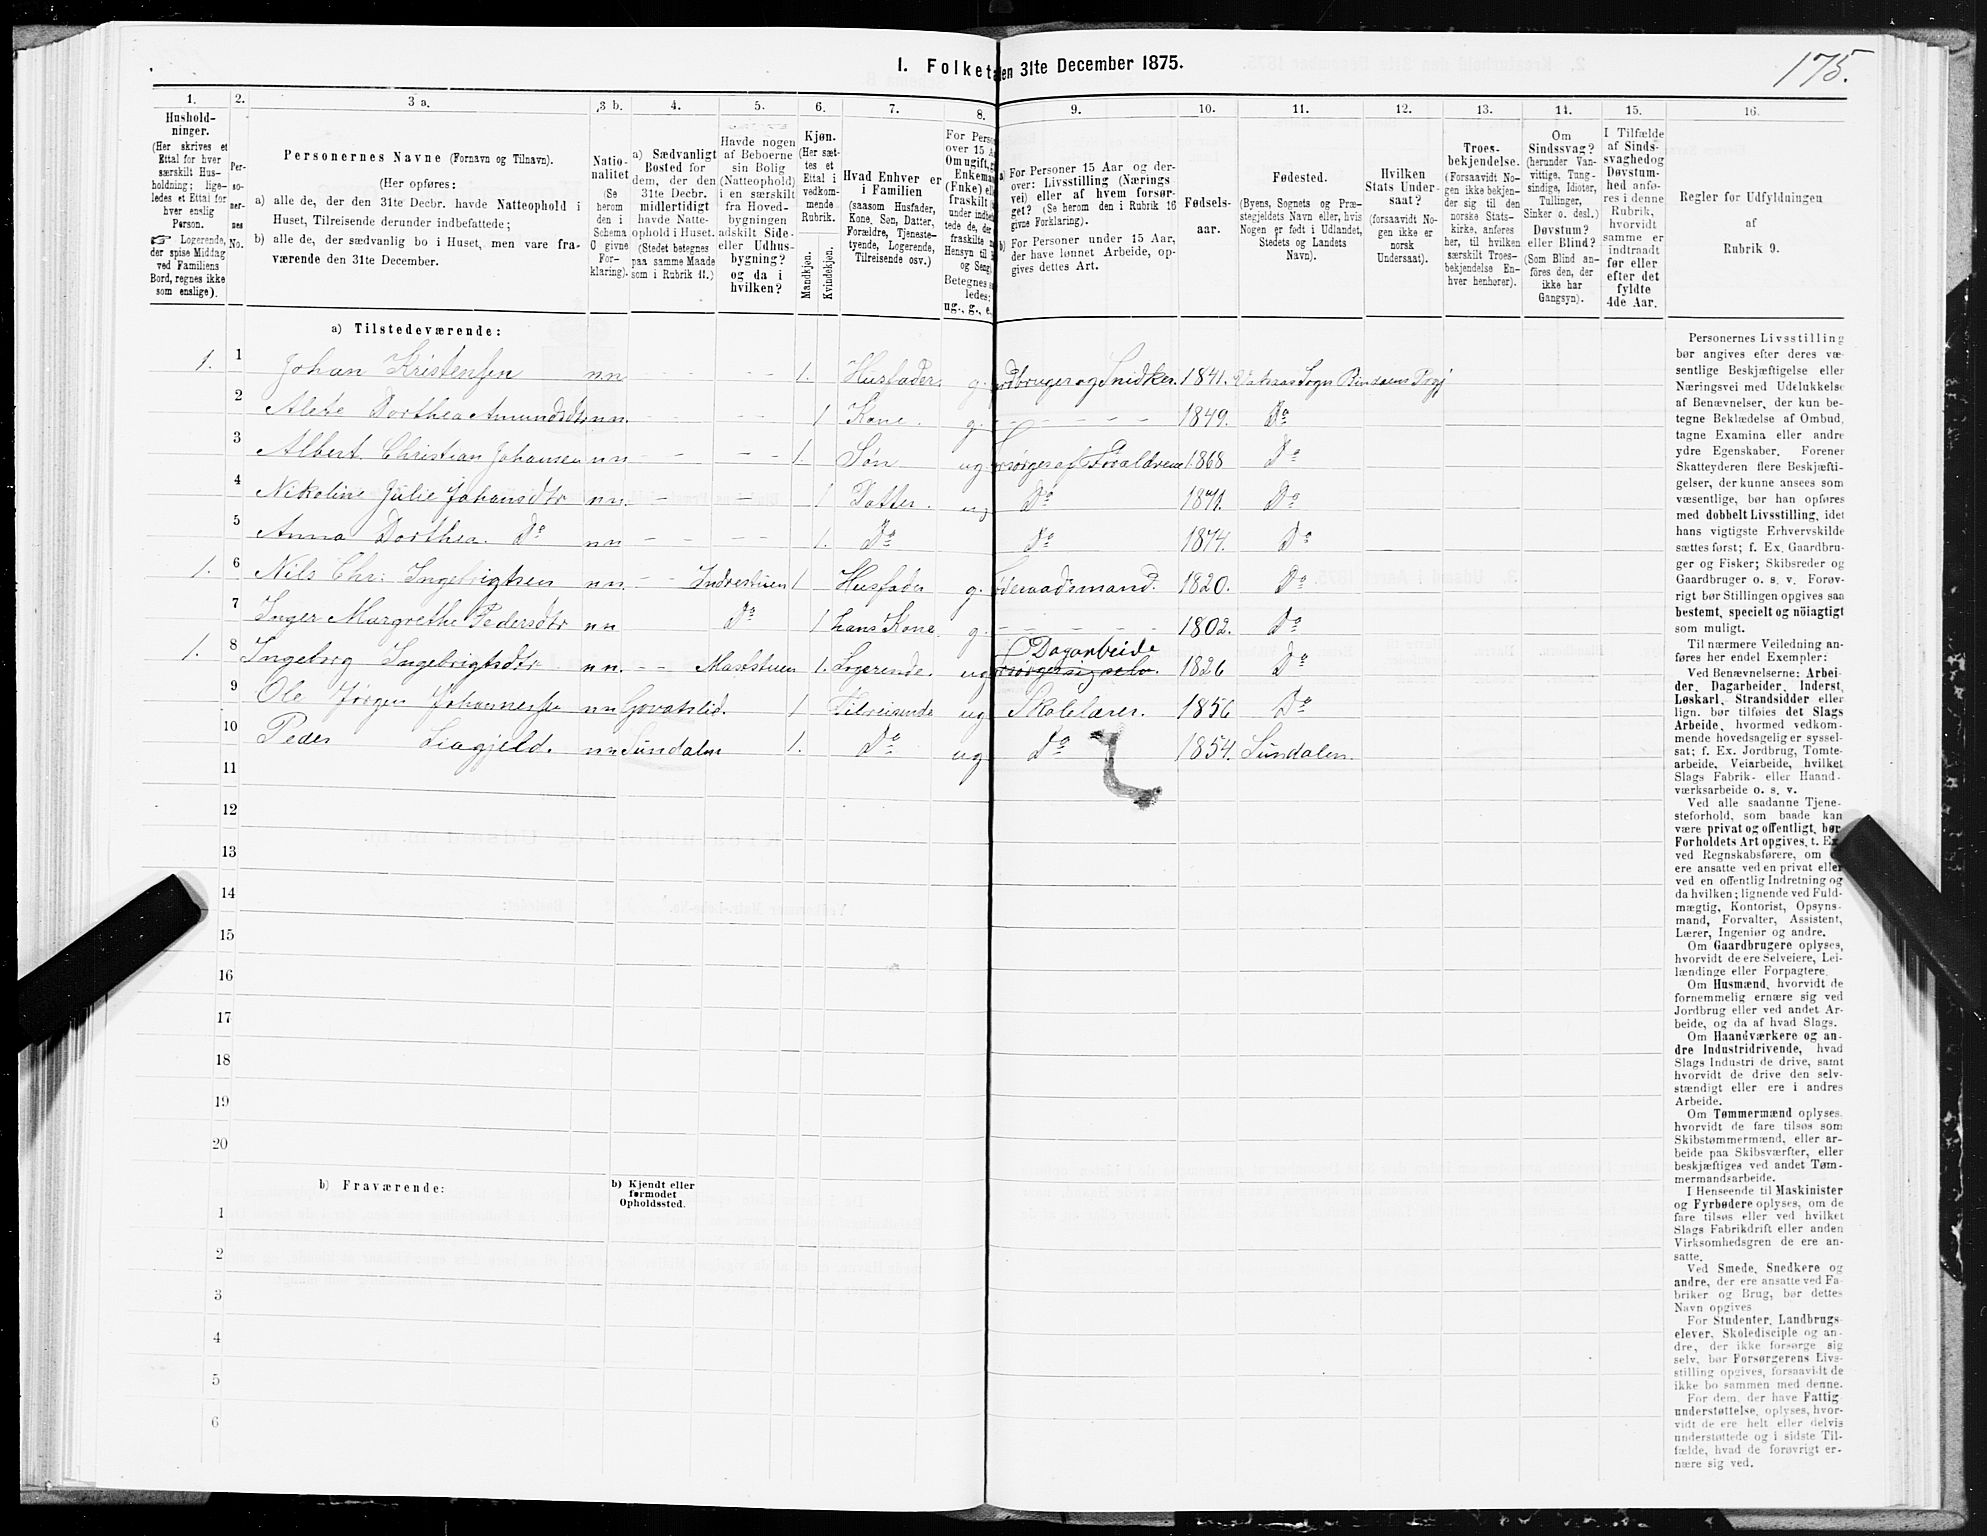 I. Folketa en 31te December 1875.
175.
1. 2. 3 a. 3 b. 4. 5. 6. 7. 8. 9. 10. 11. 12. 13. 14. 15. 16.
Hushold-
ninger.
(Her skrives et
Ettal for hver
særskilt Hus-
holdning; lige-
ledes et Ettal for
hver enslig
Person.
☞ Logerende,
der spise Middag
ved Familiens
Bord, regnes ikke
som enslige).
Per-
so-
ner-
nes
No.
Personernes Navne (Fornavn og Tilnavn).
(Her opføres:
a) alle de, der den 31te Decbr. havde Natteophold i
Huset, Tilreisende derunder indbefattede;
b) alle de, der sædvanlig bo i Huset, men vare fra-
værende den 31te December.
Natio-
nalitet
(Se
herom
den i
Schema
O givne
For-
klaring).
a) Sædvanligt
Bosted for
dem, der den
31te Decbr.
midlertidigt
havde Natte-
ophold i Huset.
(Stedet betegnes
paa samme Maade
som i Rubrik 11.)
Havde nogen
af Beboerne
sin Bolig
(Natteophold)
i en særskilt
fra Hoved-
bygningen
adskilt Side-
eller Udhus-
bygning?
og da i
hvilken?
Kjøn.
(Her sæt-
tes et
Ettal i
vedkom-
mende
Rubrik.
Mandkjøn.
Kvindekjøn.
Hvad Enhver er
i Familien
(saasom Husfader,
Kone, Søn, Datter,
Forældre, Tjeneste-
tyende, Logerende,
Tilreisende osv.)
For Perso
over 15 A
Om ugift, g
Enkema
(Fnke) ell
fraskilt
under indbe
tede de, der
fraskilte
Hensyn til
og Seng
Betegnes s
ledes;
ug., g., e.
a) For Personer 15 Aar og der-
over: Livsstilling (Nærings-
vei) eller af hvem forsør-
get? (Se herom den i Rubrik 16
givne Forklaring).
b) For Personer under 15 Aar,
der have lønnet Arbeide, op-
gives dettes Art.
Fødsels-
aar.
Fødested.
(Byens, Sognets og Præ-
stegjeldets Navn eller, hvis
Nogen er født i Udlandet,
Stedets og Landets
Navn).
Hvilken
Stats Under-
saat?
(forsaavidt No-
gen ikke er
norsk
Undersaat).
Troes-
bekjendelse.
(Forsaavidt No-
gen ikke bekjen-
der sig til den
norske Stats-
kirke, anføres
her, til hvilken
særskilt Troes-
bekjendelse En-
hver henhører).
Om
Sindssvag?
(herunder Van-
vittige, Tung-
sindige, Idioter,
Tullinger,
Sinker o. desl.)
Døvstum?
eller Blind?
(Som Blind an-
føres den, der
ikke har
Gangsyn).
I Tilfælde
af Sinds-
svaghed og
Døvstum-
hed anfø-
res i denne
Rubrik,
hvorvidt
samme er
indtraadt
før eller
efter det
fyldte
4de Aar.
Regler for Udfyldningen
af
Rubrik 9.
a) Tilstedeværende:
1. 1 Johan Kristensen n.n. - - - - 1. Husfader g. rdbruger og Snidker. 1841. Sogn Bindalens Prgj
2 Alete Dorthea Amundsdtr n.n. - - - - 1 Kone. g. - - - - 1849. Do
3 Albert Christian Johansen n n - - - - 1. Søn ug rsørges af Forældrene 1868 Do
4 Nikoline Julie Johansdtr n n. - - 1 Datter. ug Do 1871. Do
5 Anna Dorthea. Do n n - - - - 1. Do Do 1874. Do
1. 6 Nils Chr: Ingebrigtsen n n. - - Indrestuen 1 Husfader g. øderaadsmand. 1820. Do
7 Inger Margrethe Pedersdtr n n Do 1 hans Kone. g. - - - - 1802. Do
1. 8 Ingebrg Ingebrigtsdtr n n. - - Masstuen 1. Logerende. ug Dagarbeide rsørger sig selv. 1826 Do
9 Ole Jørgen Johannessen n n Govatslid. 1 Tilreisende ug Skolelærer. 1856 Do
10 Peder Liagjeld. n n Sundalen 1. Do ug Do 1854. Sundalen.
11
12
13
14
15
16
17
18
19
20
b) Fraværende:
b) Kjendt eller
formodet
Opholdssted.
1
2
3
4
5
6
Personernes Livsstilling
bør angives efter deres væ-
sentlige Beskjæftigelse eller
Næringsvei med Udelukkelse
af Benævnelser, der kun be-
tegne Beklædelse af Ombud,
tagne Examina eller andre
ydre Egenskaber. Forener
Skatteyderen flere Beskjæfti-
gelser, der kunne ansees som
væsentlige, bør han opføres
med dobbelt Livsstilling, idet
hans vigtigste Erhvervskilde
sættes først; f. Ex. Gaardbru-
ger og Fisker; Skibsreder og
Gaardbruger o. s. v. Forøv-
rigt bør Stillingen opgives saa
bestemt, specielt og nöiagtigt
som muligt.
Til nærmere Veiledning an-
føres her endel Exempler:
Ved Benævnelserne: Arbei-
der, Dagarbeider, Inderst,
Løskarl, Strandsidder eller
lign. bør tilføies det Slags
Arbeide, hvormed vedkom-
mende hovedsagelig er syssel-
sat; f. Ex. Jordbrug, Tomte-
arbeide, Veiarbeide, hvilket
Slags Fabrik- eller Haand-
værksarbeide o. s. v.
Ved alle saadanne Tjene-
steforhold, som baade kan
være privat og offentligt, bør
Forholdets Art opgives, t. Ex.
ved Regnskabsførere, om
ere ansatte ved en privat eller
ved en offentlig Indretning og
da hvilken; lignende ved Fuld-
mægtig, Kontorist, Opsyns-
mand, Forvalter, Assistent,
Lærer, Ingeniør og andre.
Om Gaardbrugere oplyses,
hvorvidt de ere Selveiere, Lei-
lændinge eller Forpagtere.
Om Husmænd, hvorvidt de
fornemmelig ernære sig ved
Jordbrug eller ved andet Ar-
beide, og da af hvad Slags.
Om Haandværkere og an-
dre Industridrivende, hvad
Slags Industri de drive, samt
hvorvidt de drive den selv-
stændigt eller ere i andres
Arbeide.
Om Tømmermænd oplyses,
hvorvidt de fare tilsøs som
Skibstømmermænd, eller ar-
beide paa Skibsværfter, eller
beskjæftiges ved andet Tøm-
mermandsarbeide.
I Henseende til Maskinister
og Fyrbødere oplyses, om de
fare tilsøs eller ved hvilket
Slags Fabrikdrift eller anden
Virksomhedsgren de ere an-
satte.
Ved Smede, Snedkere og
andre, der ere ansatte ved Fa-
briker og Brug, bør dettes
Navn opgives
For Studenter, Landbrugs-
elever, Skoledisciple og an-
dre, der ikke forsørge sig
selv, bør Forsørgerens Livs-
stilling opgives, forsaavidt de
ikke bo sammen med denne.
For dem, der have Fattig-
understøttelse, oplyses, hvor-
vidt de ere helt eller delvis
understøttede og i sidste Til-
fælde, hvad de forøvrigt er-
nære sig ved.